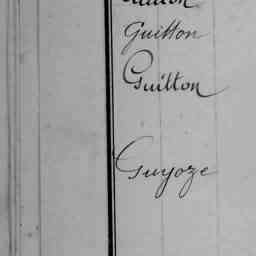 Guitton
Guitton
Guyoze